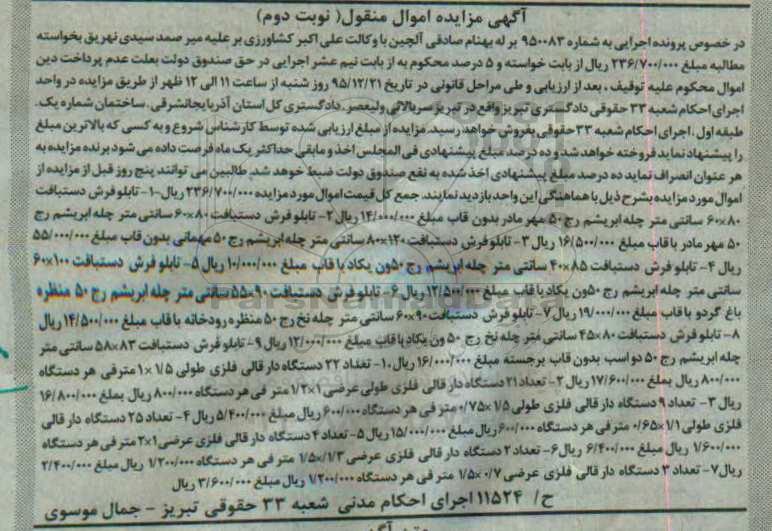 آگهی مزایده اموال منقول( نوبت دوم)
در خصوص پرونده اجرایی به شماره ۹۵۰۰۸۳ بر له بهنام صادقی آلچین با وکالت علی اکبر کشاورزی بر علیه میر صمد سیدی نهریق بخواسته
مطالبه مبلغ ۲۳۶/۷۰۰/۰۰۰ ریال از بابت خواسته و ۵ درصد محکوم به از بابت نیم عشر اجرایی در حق صندوق دولت بعلت عدم پرداخت دین
اموال محکوم علیه توقیف ، بعد از ارزیابی و طی مراحل قانونی در تاریخ ۹۵/۱۲/۲۱ روز شنبه از ساعت ۱۱ الی ۱۲ ظهر از طریق مزایده در واحد
اجرای احکام شعبه ۳۳ حقوقی دادگستری تبریز واقع در تبریز سربالائی ولیعصر، دادگستری کل استان آذربایجانشرقی، ساختمان شماره یک،
طبقه اول ، اجرای احکام شعبه ۳۳ حقوقی بفروش خواهد رسید. مزایده از مبلغ ارزیابی شده توسط کارشناس شروع و به کسی که بالاترین مبلغ
را پیشنهاد نماید فروخته خواهد شد، ده درصد مبلغ پیشنهادی فی المجلس اخذ و مابقی حداکثر یک ماه فرصت داده می شود برنده مزایده به
هر عنوان انصراف نماید ده درصد مبلغ پیشنهادی اخذ شده به نفع صندوق دولت ضبط خوهد شد. طالبین می توانند پنج روز قبل از مزایده از
اموال مورد مزایده بشرح ذیل با هماهنگی این واحد بازدید نمایند. جمع کل قیمت اموال مورد مزایده ۲۳۶/۷۰۰/۰۰۰ ریال-۱- تابلو فرش دستبافت
۶۰×۸۰ سانتی متر چله ابریشم رج ۵۰ مهر مادر بدون قاب مبلغ ۱۴/۰۰۰/۰۰۰ ریال ۲- تابلو فرش دستبافت ۸۰×۶۰ سانتی متر چله ابریشم رج
۵۰ مهر مادر با قاب مبلغ ۱۶/۵۰۰/۰۰۰ ریال ۳- تابلو فرش دستبافت ۱۲۰×۸۰ سانتی متر چله ابریشم رج ۵۰ مهمانی بدون قاب مبلغ ۵۵/۰۰۰/۰۰۰
ریال ۴- تابلو فرش دستبافت ۸۵×۴۰ سانتی متر چله ابریشم رج ۵۰ون یکاد با قاب مبلغ ۱۰/۰۰۰/۰۰۰ ریال ۵- تابلو فرش دستبافت ۱۰۰×۶۰
سانتی متر چله ابریشم رج ۵۰ون یکاد با قاب مبلغ ۱۲/۵۰۰/۰۰۰ ریال ۶- تابلو فرش دستبافت ۹۰×۵۵ سانتی متر چله ابریشم رج ۵۰ منظره
باغ گردو با قاب مبلغ ۱۹/۰۰۰/۰۰۰ ریال ۷- تابلو فرش دستبافت ۹۰×۶۰ سانتی متر چله نخ رج ۵۰ منظره رودخانه با قاب مبلغ ۱۴/۵۰۰/۰۰۰ ریال
۸- تابلو فرش دستبافت ۸۰×۴۵ سانتی متر چله نخ رج ۵۰ ون یکاد با قاب مبلغ ۱۲/۰۰۰/۰۰۰ ریال ۹- تابلو فرش دستبافت ۸۳×۵۸ سانتی متر
چله ابریشم رج ۵۰ دو اسب بدون قاب برجسته مبلغ ۱۶/۰۰۰/۰۰۰ ریال ۱۰- تعداد ۲۲ دستگاه دار قالی فلزی طولی ۱/۵ ×۱ متر فی هر دستگاه
۸۰۰/۰۰۰ ریال بملغ ۱۷/۶۰۰/۰۰۰ ریال ۲- تعداد ۲۱ دستگاه دار قالی فلزی طولی عرضی ۱×۱/۲ متر فی هر دستگاه ۸۰۰/۰۰۰ ریال بملغ ۱۶/۸۰۰/۰۰۰
ریال ۳- تعداد ۹ دستگاه دار قالی فلزی طولی ۱/۵ ×۰/۷۵ متر فی هر دستگاه ۶۰۰/۰۰۰ ریال مبلغ ۵/۴۰۰/۰۰۰ ریال ۴- تعداد ۲۵ دستگاه دار قالی
فلزی طولی ۱/۱×۰/۶۵ متر فی هر دستگاه ۶۰۰/۰۰۰ ریال مبلغ ۱۵/۰۰۰/۰۰۰ ریال ۵- تعداد ۴ دستگاه دار قالی فلزی عرضی ۱×۲ متر فی هر دستگاه
۱/۶۰۰/۰۰۰ ریال مبلغ ۶/۴۰۰/۰۰۰ ریال ۶- تعداد ۲ دستگاه دار قالی فلزی عرضی ۱/۳×۱/۵ متر فی هر دستگاه ۱/۲۰۰/۰۰۰ ریال مبلغ ۲/۴۰۰/۰۰۰
ریال ۷- تعداد ۳ دستگاه دار قالی فلزی عرضی ۰/۷×۱/۵ متر فی هر دستگاه ۱/۲۰۰/۰۰۰ ریال مبلغ ۳/۶۰۰/۰۰۰ ریال
ح/ ۱۱۵۲۴ اجرای احکام مدنی شعبه ۳۳ حقوقی تبریز - جمال موسوی